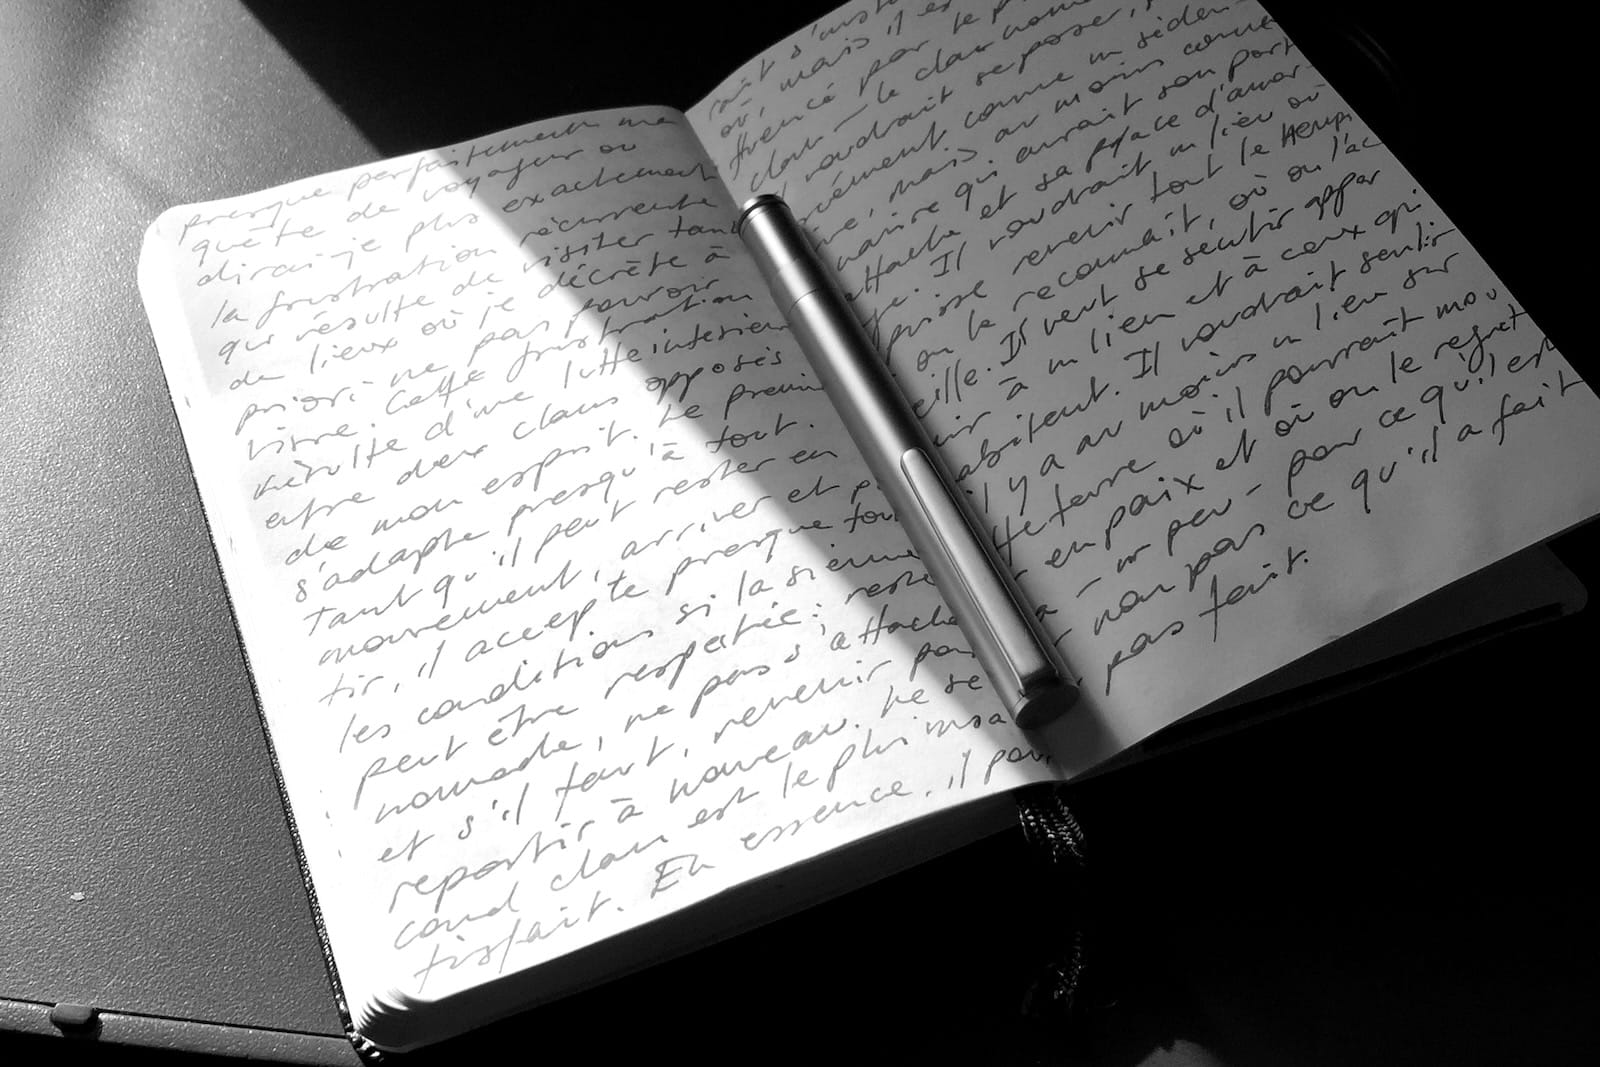 presque parfaitement ma
quête de voyageur ou
dirai-je plus exactement
la frustration récurrente
qui résulte de visiter tant
de lieux où je décrète à
priori ne pas pouvoir
vivre. Cette frustration
résulte d'une lutte intérieure
entre deux clans opposés
de mon esprit. Le premier
s'adapte presqu'à tout.
Tant qu'il peut rester en
mouvement, arriver et
tir, il accepte presque
les conditions si la sienne
peut être respectée : rester
nomade, ne pas s'attacher
et s'il faut, revenir
repartir à nouveau. Le se
cond clan est le plus
tisfait. En essence, il
mais il
par le
clan — le clan
voudrait se poser,
comme un séden-
mais au moins comme
qui aurait son port
attache et sa place d'amar-
Il voudrait un lieu où
revenir tout le temps
on le reconnait, où on l'ac
eille. Il veut se sentir appar
nir à un lieu et à ceux qui
abitent. Il voudrait sentir
il y a au moins un lieu sur
tte terre où il pourrait mou
en paix et où on le regret
a - un peu - pour ce qu'il est
non pas ce qu'il a fait
pas fait.